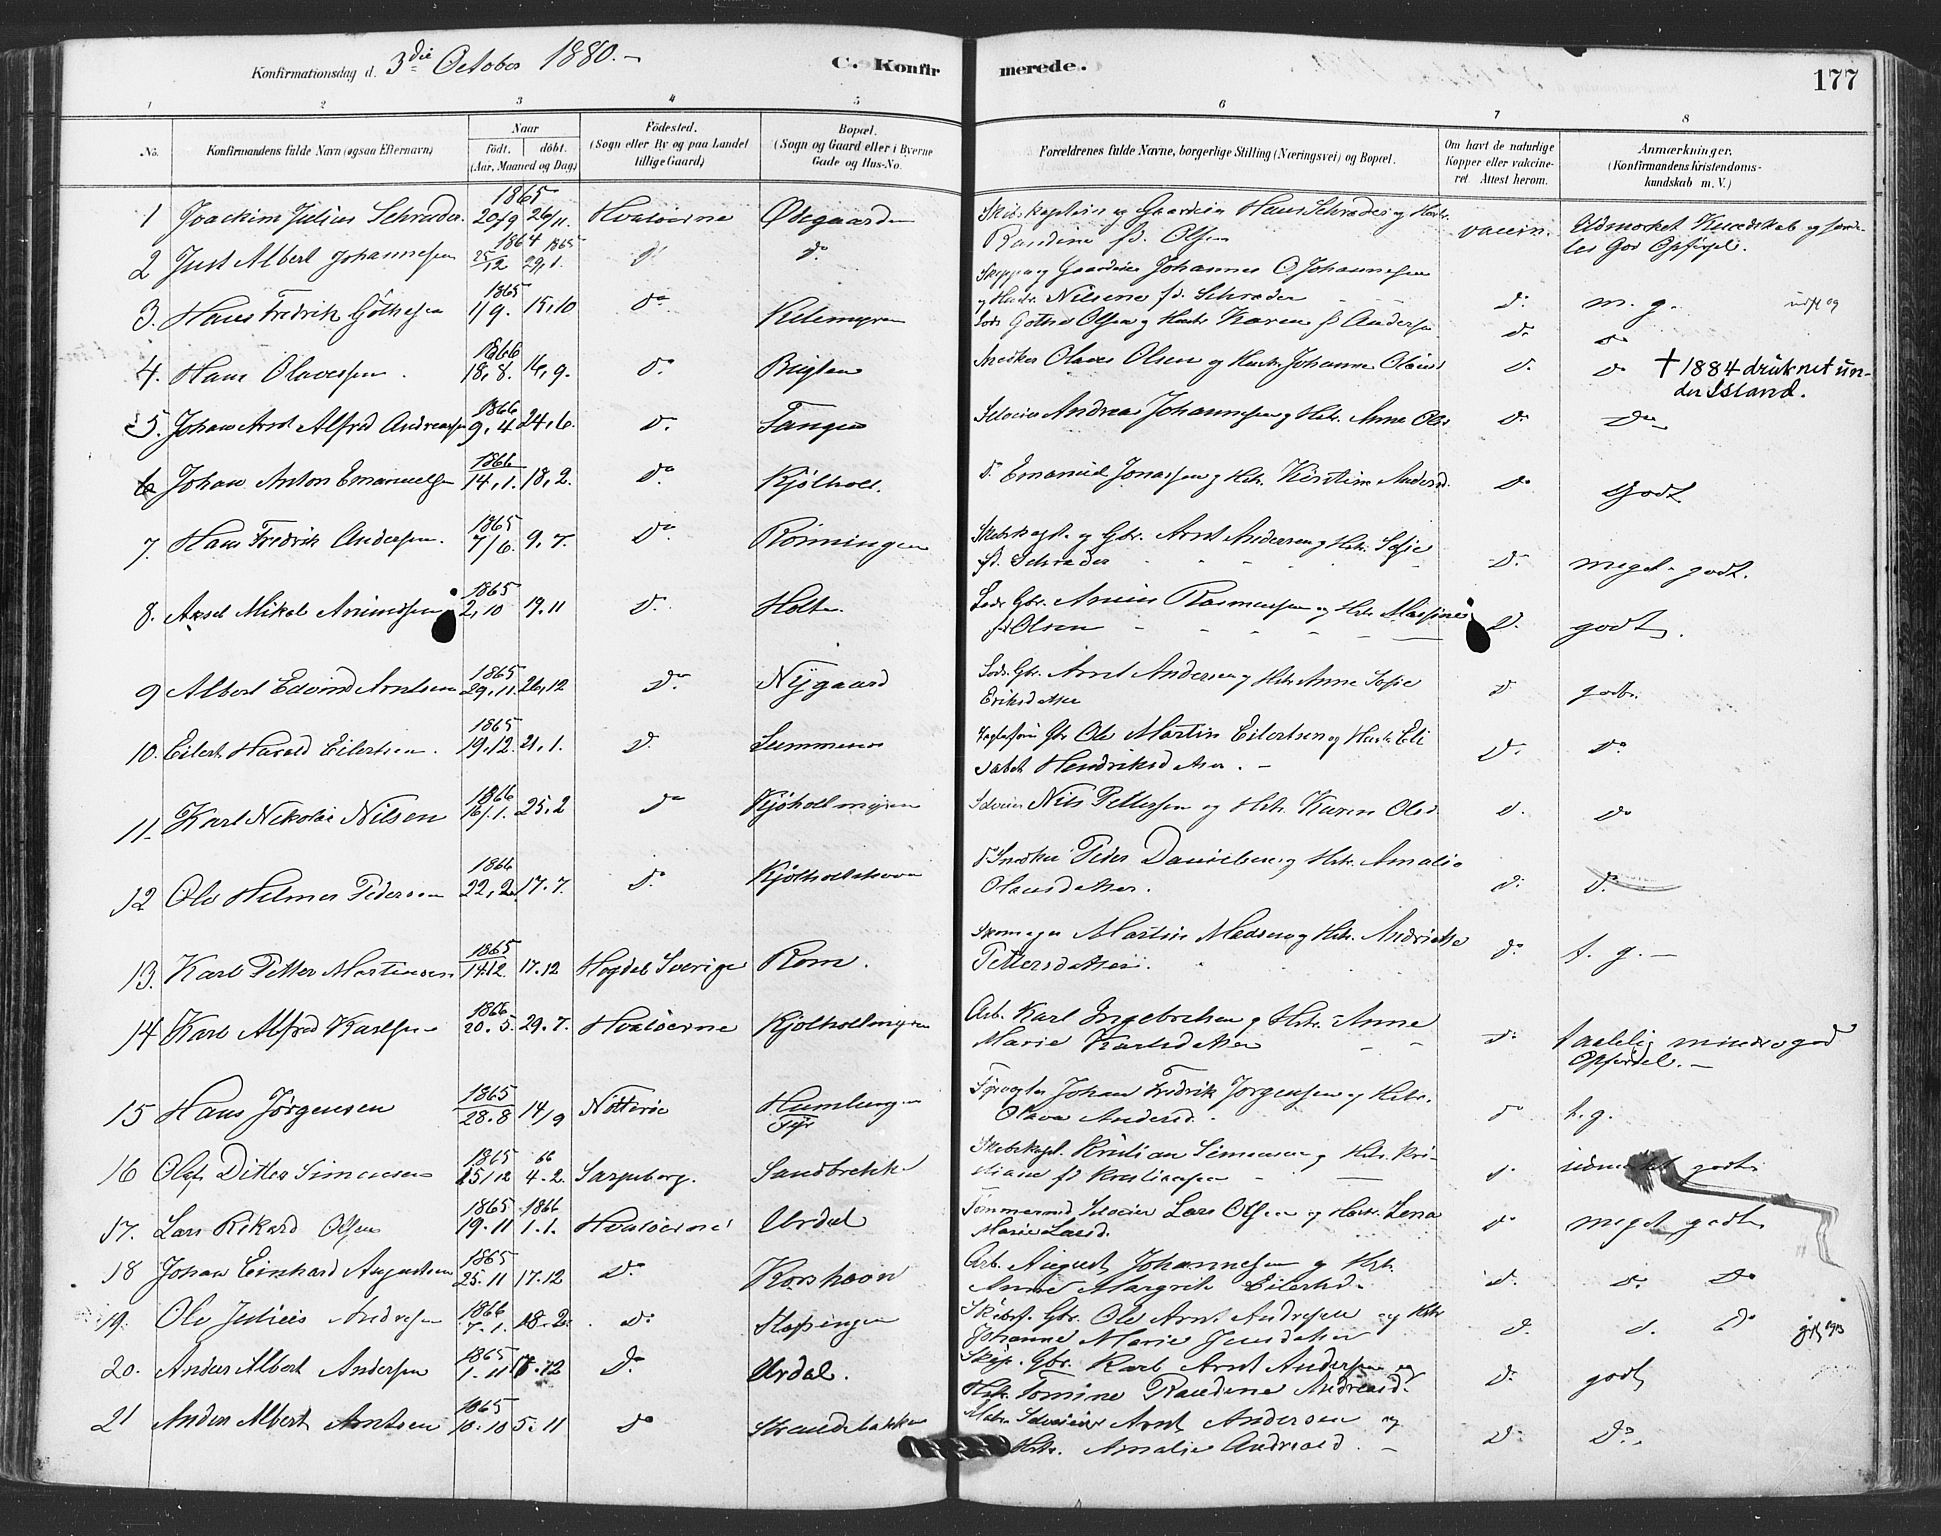 Konfirmationsdag d. 3die October 1880.-
C. Konfirmerede.
177
1 2 3 4 5 6 7 8
No.
Konfirmandens fulde Navn (ogsaa Efternavn)
Naar
født. døbt.
(Aar, Maaned og Dag)
Fødested.
(Sogn eller By og paa Landet
tillige Gaard)
Bopæl.
(Sogn og Gaard eller i Byerne
Gade og Hus-No.
Forældrenes fulde Navne, borgerlige Stilling (Næringsvei) og Bopæl.
Om havt de naturlige
Kopper eller vakcine-
ret Attest herom.
Anmærkninger.
(Konfirmandens Kristendoms-
kundskab m. V.)
1 Joachim Julius Schrøder 1865 20/9 26/11 Hvaløerne Ødegaarden Hans Schrøder og Hustr. vaccin. Udmærket Kundskab og
Randine fd. Olsen
les God Opførsel.
2 Just Albert Johannesen 1864 25/12 1865 29,1. do do Gaardeier Johannes O Johannesen
og Hustr. Nilsine fd. Schrøder do m. g.
3. Hans Fredrik Gøthesen 1865 1/9. 15,10 do Kilemyren Gothe Olsen og Hustr. Karen fd Andersen do do
4. Hans Olavessen 1866 18,8. 16,9. do Olaves Olsen og Hustr. Johanne do do † 1884 druknet un-
der Island.
5. Johan Arnt Alfred Andreassen 1866 9,4 24,6. do Tangen Selveier Andreas Johannesen og Hstr. Anne Olsd do do
6 Johan Anton Emanuelsen 1866 14,1. 18,2. do Kjølholt. do Emanuel Jonassen og Hstr. Kirstine Andersd. do Godt
7. Hans Fredrik Andersen. 1865 7/6. 9,7. do Rönningen Skibskapt. og Gbr. Arnt Andersen og Hstr. Sofie
fd. Schrøder do meget godt.
8. Axsel Mikal Anundsen 1865 2,10 19.11 do Holte. Gbr. Rasmussen og Hstr. Massine
fd Olsen do godt.
9 Albert Edvind Arntsen 1865 29,11. 26,12 do Nygaard Gbr. Arnt Andersen og Hstr Anne Sofie
Eriksdatter do godt.
10. Eilert Harald Eilertsen. 1865 19,12. 21,1. do Gbr Ole Martin Eilertsen og Hustr. Eli
sabet Hendriksdatter. - do do
11. Karl Nikolai Nilsen 1866 16/1. 25,2 do Kjøholtmyren Selveier Nils Pettersen og Hstr. Karen Olsd. do do
12 Ole Helmer Pedersen 1866 22,2. 17.7. do Peder Danielsen og Hstr. Amalia
Olausdatter. do do
13. Karl Petter Martinsen 1865 14.12. 17.12 Hogdal Sverige Rom. Skomager Martin Madsen og Hstr. Andrikke
Pettersdatter. do t. g. -
14 Karl Alfred Karlsen 1866 20.5. 29.7. Hvaløerne Kjølholtmyren Arb. Karl Ingebretsen og Hstr. Anne
Marie Karlsdatter do taalelig mindre god
Opførsel. -
15 Hans Jørgensen 1865 28.8 14/9 Nötterö
Fyr Johan Fredrik Jorgensen og Hstr.
Olava Andersd. do t. g.
16 Olaf Ditlev Simensen 1865 25/12 66 4.2. Sarpsborg. Sandbrekke Skibskapt. Kristian Simensen og Hstr. Kri-
stiane fd Kristiansen do udmærket godt
17. Lars Rikard Olsen 1865 19.11 1866 1.1. Hvaløerne Urdal Tømmermd. Selveier Lars Olsen og Hustr. Lena
Marie Larsd. do meget godt
18 Johan Einhard Augustsen 1865 25.11 17.12 do Korshavn Arb. August Johannesen og Hstr.
Anne Margrete Eilertsd. do do do
19. Ole Julius Andresen 1866 7.1. 18.2. do Gbr. Ole Arnt Andresen og Hstr
Johanne Marie Jensdatter do do do
20. Anders Albert Andersen 1865 1.11 17.12 do Urdal. Gbr. Karl Arnt Andersen og
Hstr. Tomine Randine Andreasd. do godt
21 Anders Albert Arntsen 1865 10.10 5.11 do Strandebakken Selveier Arnt Andersen og
Hstr. Amalie Andreasd. - do do